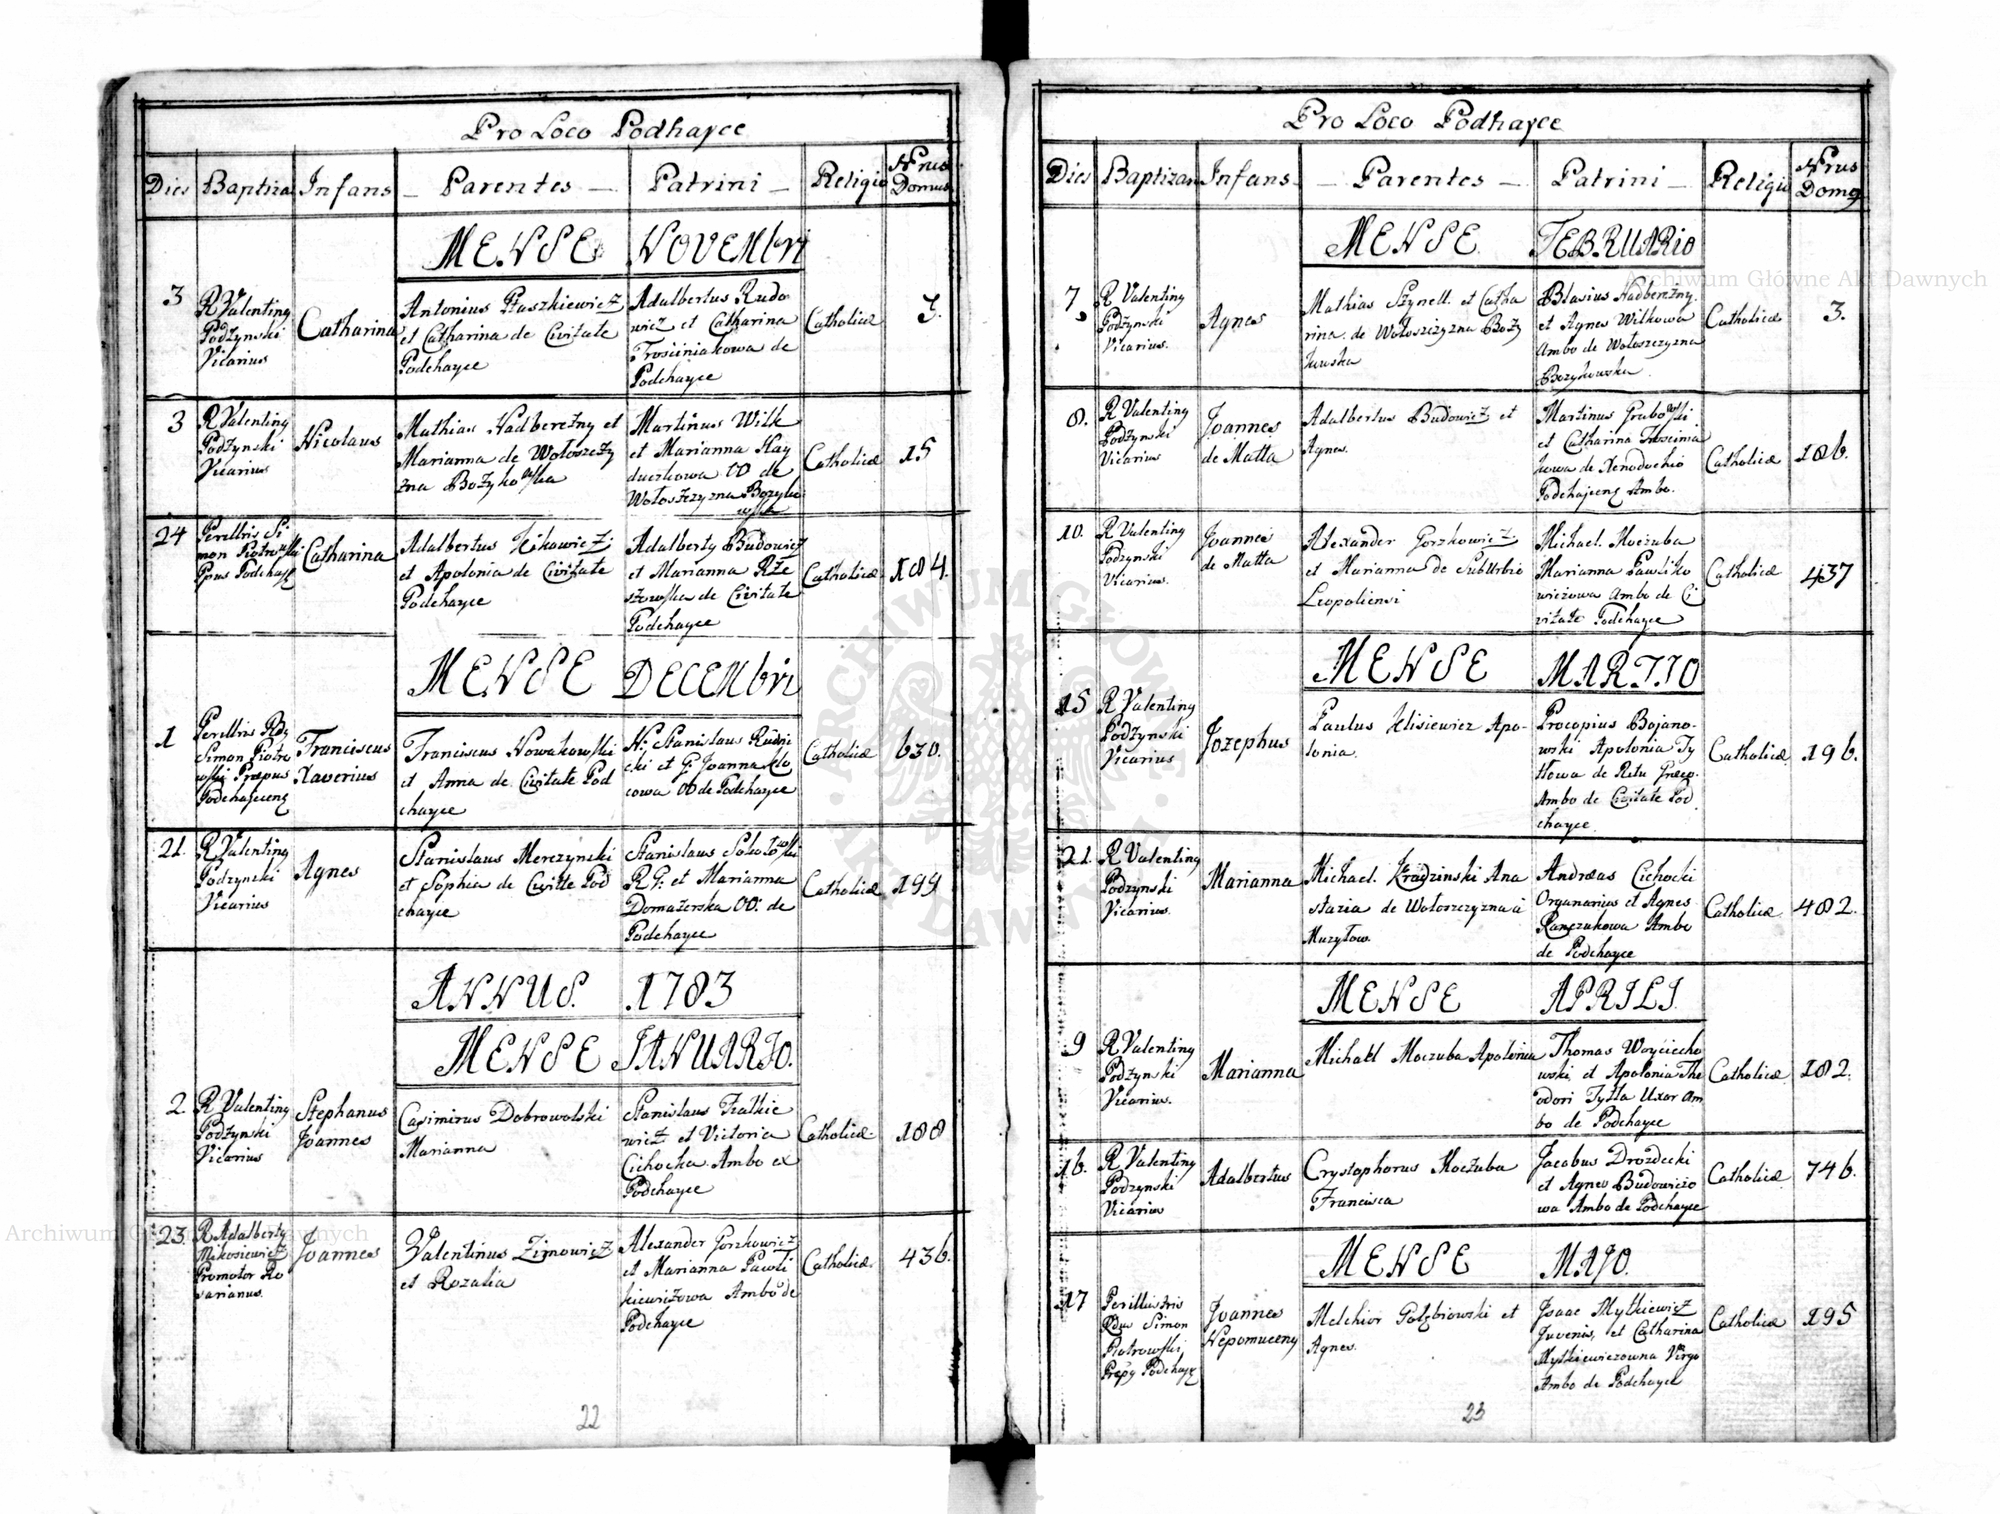 Pro Loco Podhayce
Dies Baptiza Infans Parentes Patrini Religio Nrus Domus
MENSE NOVEMbri
3 R Valentinq Podzynski Vicarius
Catharina
Antonius Ptaszkiewicz
et Catharina de Civitate
Podchayce
Adalbertus Rudo
wicz et Catharina
Trosciniakowa de
Podchayce
Catholicæ
3.
3
R Valentinq
Podzynski
Vicarius
Nicolaus
Mathias Nadberezny et
Marianna de Wołoszczy
zna Bożykowska
Martinus Wilk
et Marianna Hay
duczkowa OO de
Wołoszczyzna Bozyko
wska
Catholicæ
15
24
Perillris Si
mon Piotrowski
Ppus Podchayc
Catharina
Adalbertus
et Apolonia de Civitate
Podchayce
Adalbertq Budowicz
et Marianna Rze
szowska de Civitate
Podchayce
Catholicæ
184.
MENSE DECEMbri
1
Perillris Rdq
Simon Piotro
wski Præpus
Podchajecenq
Franciscus
Xaverius
Franciscus Nowakowski
et Anna de Civitate Pod
chayce
Stanislaus Rudni
cki et G: Joanna
cowa OO de Podchayce
Catholicæ
630.
21.
R Valentinq
Podzynski
Vicarius
Agnes
Stanislaus Merczynski
et Sophia de Civitte Pod
chayce
Stanislaus Sokołowski
R G: et Marianna
Domazerska OO: de
Podchayce
Catholicæ
194
ANNUS. 1783
MENSE JANUARJO.
2
R Valentinq
Podzynski
Vicarius
Stephanus
Joannes
Casimirus Dobrowolski
Marianna
Stanislaus Fratkie
wicz et Victoria
Cichocka Ambo ex
Podchayce
Catholicæ
188
23.
R Adalbertq
Mikosiewicz
Promotor Ro
sarianus.
Joannes
Valentinus Zimowicz
et Rozalia
Alexander Gorzkowicz
et Marianna Pawli
kiewiczowa Ambo de
Podchayce
Catholicæ.
436.
22
Pro Loco Podhayce
Dies Baptizan Infans Parentes Patrini Religio Nrus Domq
MENSE FEBRUARIO
7
R Valentinq
Podzynski
Vicarius.
Agnes
Mathias Sztynell. et Catha
rina. de Wołoszczyzna Boży
kowska
Blasius Nadberezny.
et Agnes Wilkowa
Ambo de Wołoszczyzna
Bozykowska.
Catholicæ
3.
8.
R Valentinq
Podzynski
Vicarius
Joannes
de Matta
Adalbertus Budowicz et
Agnes.
Martinus Grabowski.
et Catharina Trościnia
kowa de Xenodochio
Podchajecenq Ambo.
Catholicæ
186.
10.
R Valentinq
Podzynski
Vicarius.
Joannes
de Matta
Alexander Gorzkowicz
et Marianna de SubUrbio
Leopoliensi
Michael. Moczuba
Marianna Pawliko
wiczowa Ambo de Ci
vitate Podchayce
Catholicæ
437
MENSE MARTJO
15
R Valentinq
Podzynski
Vicarius
Jozephus
Paulus Jelisiewicz Apo-
lonia.
Procopius Bojano-
wski Apolonia Ty
tłowa de Ritu Græco.
Ambo de Civitate Pod
chayce.
Catholicæ
196.
21.
R Valentinq
Podzynski
Vicarius.
Marianna
Michael. Kradzinski Ana
stazia de Wołoszczyzna ā
Muzyłow.
Andræas Cichocki
Organarius et Agnes
Ranczukowa Ambo
de Podchayce
Catholicæ
482.
MENSE APRILJ.
9
R Valentinq
Podzynski
Vicarius.
Marianna
Michaël Moczuba Apolonia
Thomas Woyciecho
wski, et Apolonia The
odori Tytla Uxor Am
bo de Podchayce
Catholicæ
182.
16.
R Valentinq
Podzynski
Vicarius
Adalbertus
Crystophorus Moczuba
Francisca
Jacobus Drozdecki
et Agnes Budowiczo
wa Ambo de Podchayce
Catholicæ
746.
MENSE MAJO.
17
Perillustris
Rdus Simon
Piotrowski
Præpq Podchayc
Joannes
Nepomucenq
Melchior Gołębiowski et
Agnes.
Isaac Mytkiewicz
Juvenis, et Catharina
Mytkiewiczowna Virgo
Ambo de Podchayce
Catholicæ
195
23
Archiwum Główne Akt Dawnych
Archiwum Główne Akt Dawnych
ARCHIWUM GŁÓWNE AKT DAWNYCH